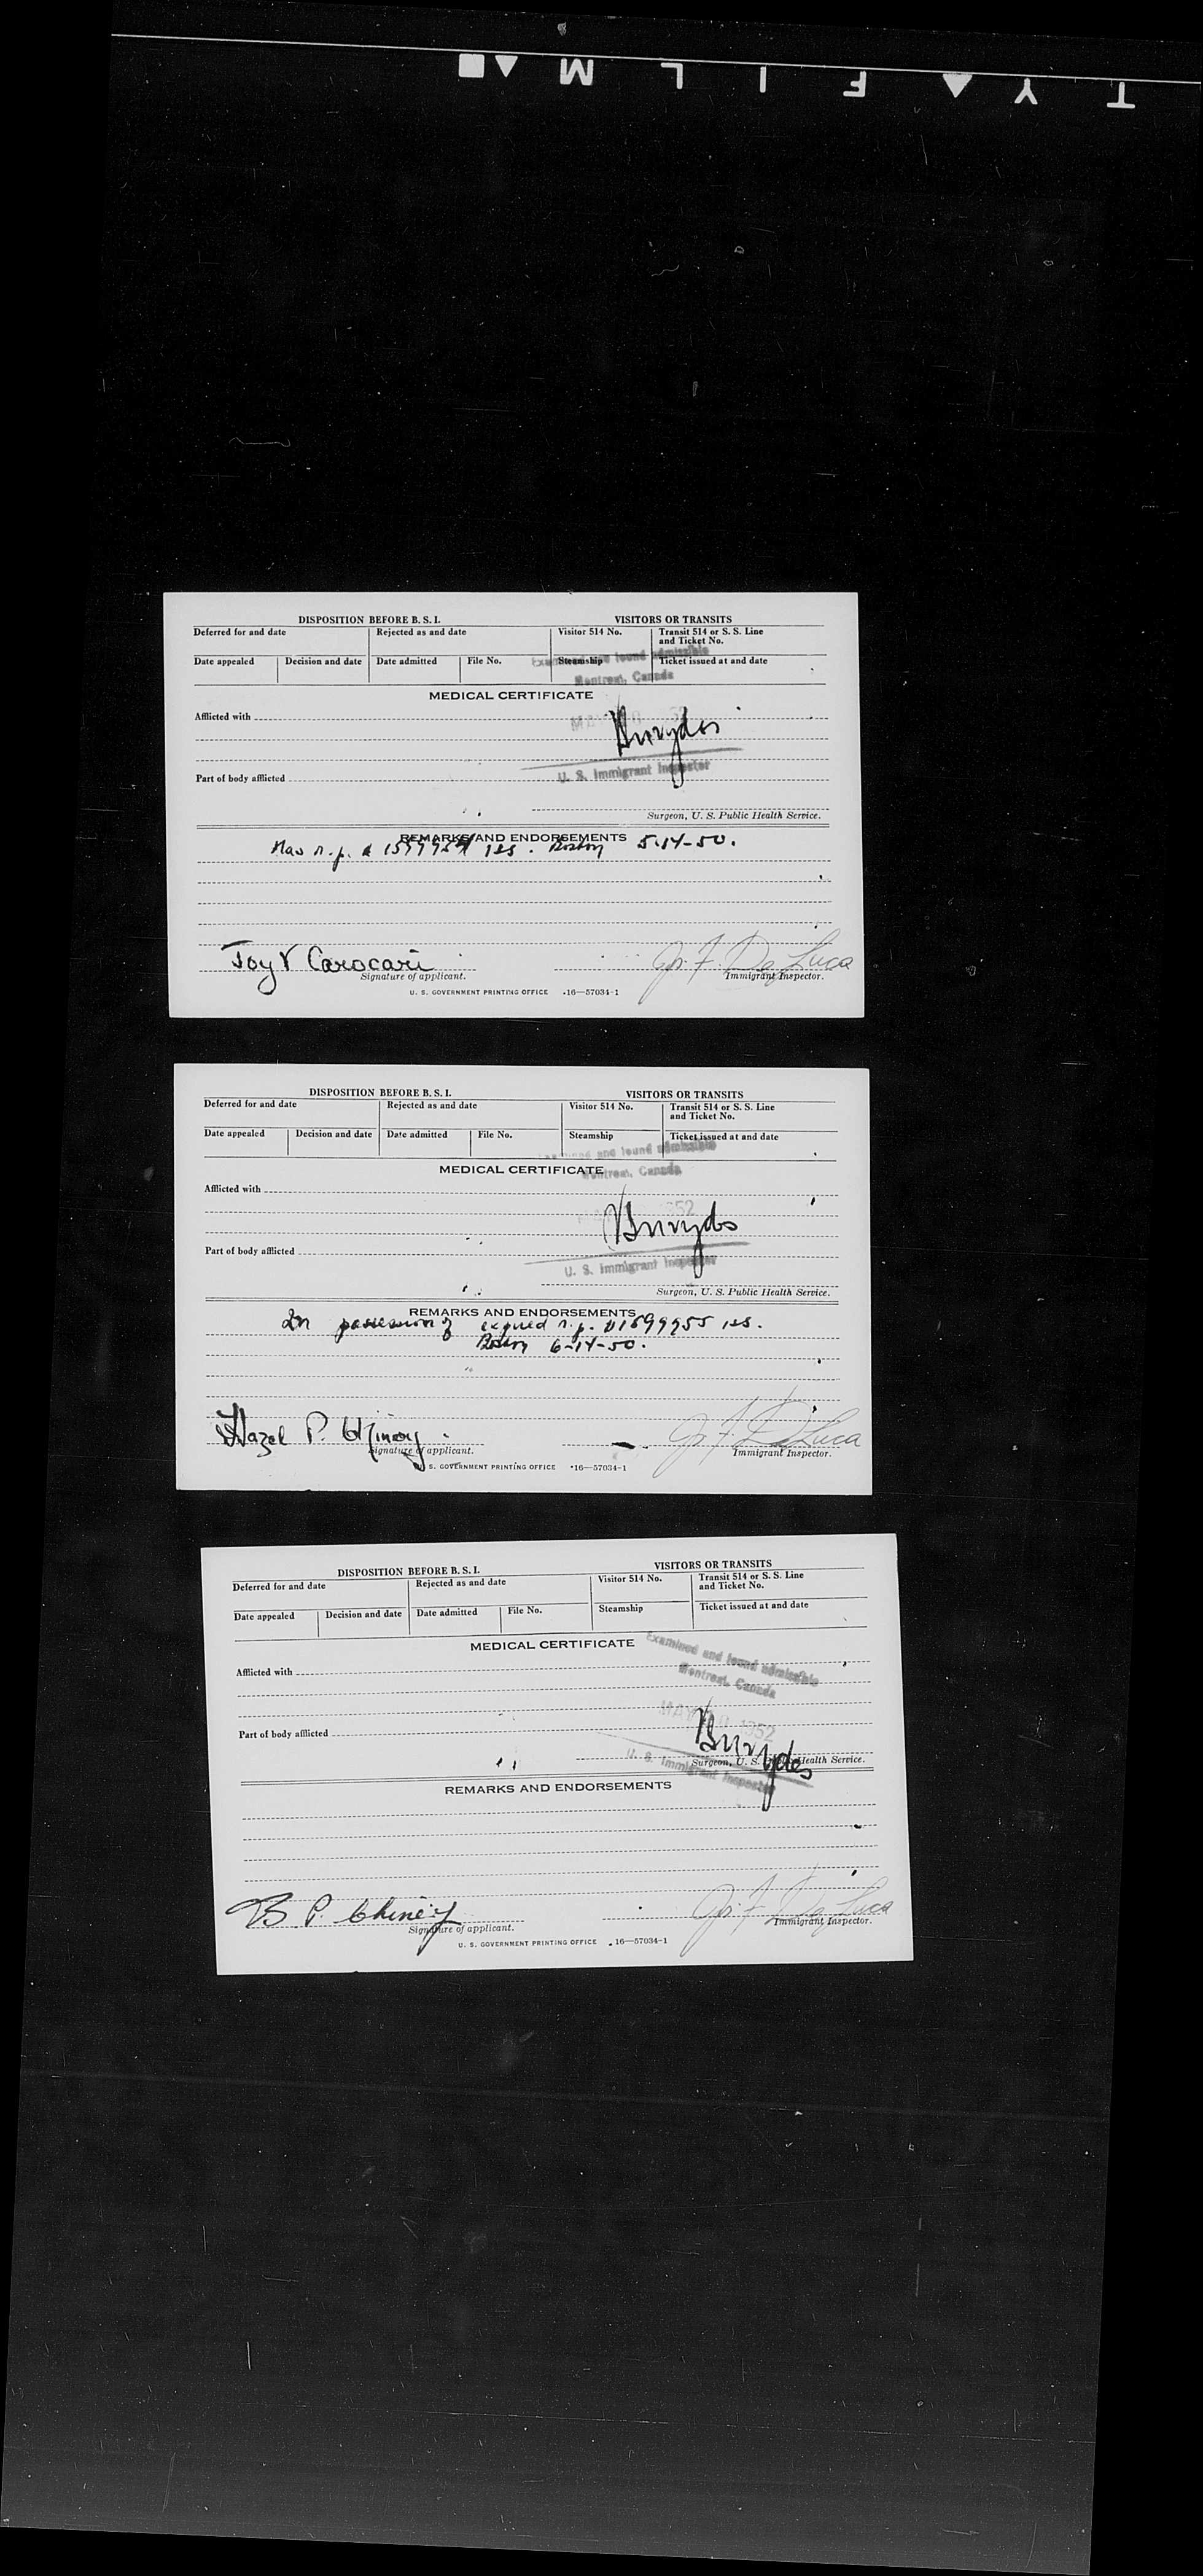 TY▲FILM▲■
DISPOSITION BEFORE B. S. I. VISITORS OR TRANSITS
Deferred for and date Rejected as and date Visitor 514 No. Transit 514 or S. S. Line and Ticket No.
Date appealed Decision and date Date admitted File No. Steamship Ticket issued at and date
found admissible
Montreal, Canada
MEDICAL CERTIFICATE
Afflicted with
U. S. Immigrant Inspector
Part of body afflicted
Surgeon, U. S. Public Health Service.
REMARKS AND ENDORSEMENTS
Has r.p. iss. Boston 5-14-50.
Joy V Carocari
Signature of applicant.
Jos. F. De Luca
Immigrant Inspector.
U. S. GOVERNMENT PRINTING OFFICE 16—57034-1
DISPOSITION BEFORE B. S. I. VISITORS OR TRANSITS
Deferred for and date Rejected as and date Visitor 514 No. Transit 514 or S. S. Line and Ticket No.
Date appealed Decision and date Date admitted File No. Steamship Ticket issued at and date
and found admissible
Montreal, Canada
MEDICAL CERTIFICATE
Afflicted with
Part of body afflicted
U. S. Immigrant Inspector
Surgeon, U. S. Public Health Service.
REMARKS AND ENDORSEMENTS
In possession of expired r.p. #1599955 iss.
Boston 6-14-50.
Hazel P. Chinoy
Signature of applicant.
Jos. F. De Luca
Immigrant Inspector.
U. S. GOVERNMENT PRINTING OFFICE 16—57034-1
DISPOSITION BEFORE B. S. I. VISITORS OR TRANSITS
Deferred for and date Rejected as and date Visitor 514 No. Transit 514 or S. S. Line and Ticket No.
Date appealed Decision and date Date admitted File No. Steamship Ticket issued at and date
MEDICAL CERTIFICATE
Examined and found admissible
Montreal, Canada
Afflicted with
MAY 1952
Part of body afflicted
U. S. Immigrant Inspector
Surgeon, U. S. Public Health Service.
REMARKS AND ENDORSEMENTS
B P. Chinoy
Signature of applicant.
Jos. F. De Luca
Immigrant Inspector.
U. S. GOVERNMENT PRINTING OFFICE 16—57034-1